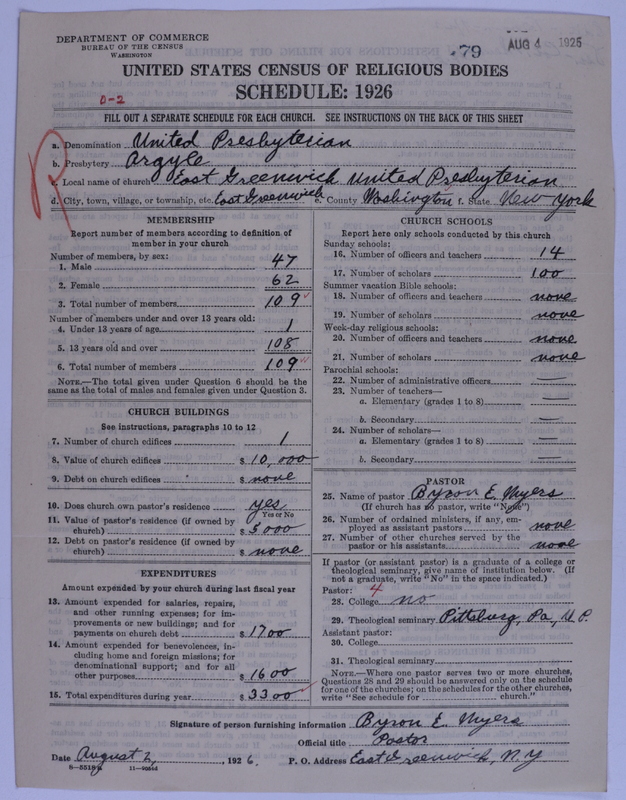 DEPARTMENT OF COMMERCE
BUREAU OF THE CENSUS
WASHINGTON
79
AUG 4 1926
UNITED STATES CENSUS OF RELIGIOUS BODIES
SCHEDULE: 1926
0-2
FILL OUT A SEPARATE SCHEDULE FOR EACH CHURCH. SEE INSTRUCTIONS ON THE BACK OF THIS SHEET
R
a. Denomination United Presbyterian
b. Presbytery Argyle
c. Local name of church East Greenwich United Presbyterian
d. City, town, village, or township, etc. East Greenwich e. County Washington f. State New York
MEMBERSHIP
Report number of members according to definition of
member in your church
Number of members, by sex:
1. Male 47
2. Female 62
3. Total number of members 109
Number of members under and over 13 years old:
4. Under 13 years of age 1
5. 13 years old and over 108
6. Total number of members 109
NOTE.—The total given under Question 6 should be the
same as the total of males and females given under Question 3.
CHURCH BUILDINGS
See instructions, paragraphs 10 to 12
7. Number of church edifices 1
8. Value of church edifices $ 10,000
9. Debt on church edifices $ none
10. Does church own pastor's residence yes
Yes or No
11. Value of pastor's residence (if owned by
church) $ 5000
12. Debt on pastor's residence (if owned by
church) $ none
EXPENDITURES
Amount expended by your church during last fiscal year
13. Amount expended for salaries, repairs,
and other running expenses; for im-
provements or new buildings; and for
payments on church debt $ 1700
14. Amount expended for benevolences, in-
cluding home and foreign missions; for
denominational support; and for all
other purposes $ 1600
15. Total expenditures during year $ 3300
CHURCH SCHOOLS
Report here only schools conducted by this church
Sunday schools:
16. Number of officers and teachers 14
17. Number of scholars 100
Summer vacation Bible schools:
18. Number of officers and teachers none
19. Number of scholars none
Week-day religious schools:
20. Number of officers and teachers none
21. Number of scholars none
Parochial schools:
22. Number of administrative officers —
23. Number of teachers—
a. Elementary (grades 1 to 8) —
b. Secondary —
24. Number of scholars—
a. Elementary (grades 1 to 8) —
b. Secondary —
PASTOR
25. Name of pastor Byron E. Myers
(If church has no pastor, write "None")
26. Number of ordained ministers, if any, em-
ployed as assistant pastors none
27. Number of other churches served by the
pastor or his assistants none
If pastor (or assistant pastor) is a graduate of a college or
theological seminary, give name of institution below. (If
not a graduate, write "No" in the space indicated.)
Pastor: 4
28. College no
29. Theological seminary Pittsburg, Pa, U.P.
Assistant pastor:
30. College
31. Theological seminary
NOTE.—Where one pastor serves two or more churches,
Questions 28 and 29 should be answered only on the schedule
for one of the churches; on the schedules for the other churches,
write "See schedule for church."
Signature of person furnishing information Byron E. Myers
Official title Pastor
Date August 2, 1926. P. O. Address East Greenwich, N.Y